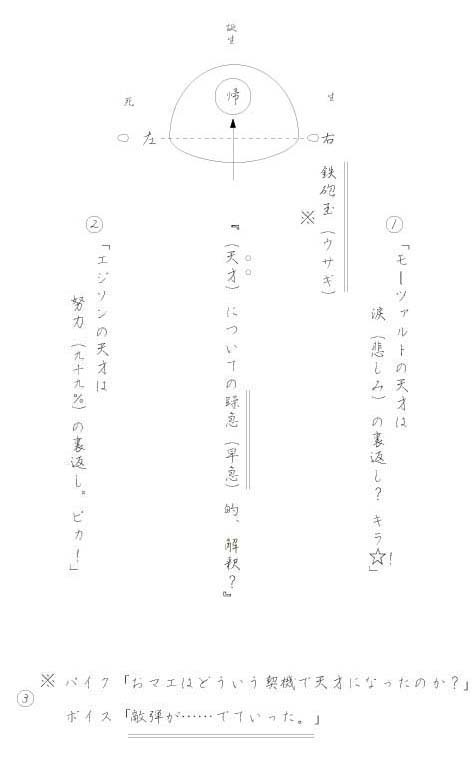 誕生
帰
死
生
左
右
鉄砲玉(ウサギ)
※
①
「モーツァルトの天才は
涙(悲しみ)の裏返し? キラ☆!」
『(天才)についての躁急(早急)的、解釈?』
②
「エジソンの天才は
努力(九十九%)の裏返し。ピカ!」
③
※ バイク「おマエはどういう契機で天才になったのか?」
ボイス「敵弾が……でていった。」